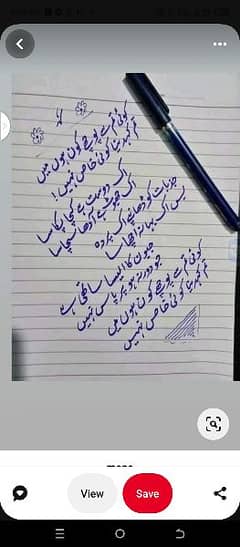 کوئی تم سے پوچھے کون ہوں میں
تم کہہ دینا کوئی خاص نہیں!
اک دوست ہے کچا پکا سا
اک جھوٹ ہے آدھا سچا سا
جذبات کو ڈھانپے اک پردہ
بس اک بہانہ اچھا سا
جیون کا ایسا ساتھی ہے
جو دور نہ ہو پر پاس نہیں
کوئی تم سے پوچھے کون ہوں میں
تم کہہ دینا کوئی خاص نہیں
View
Save